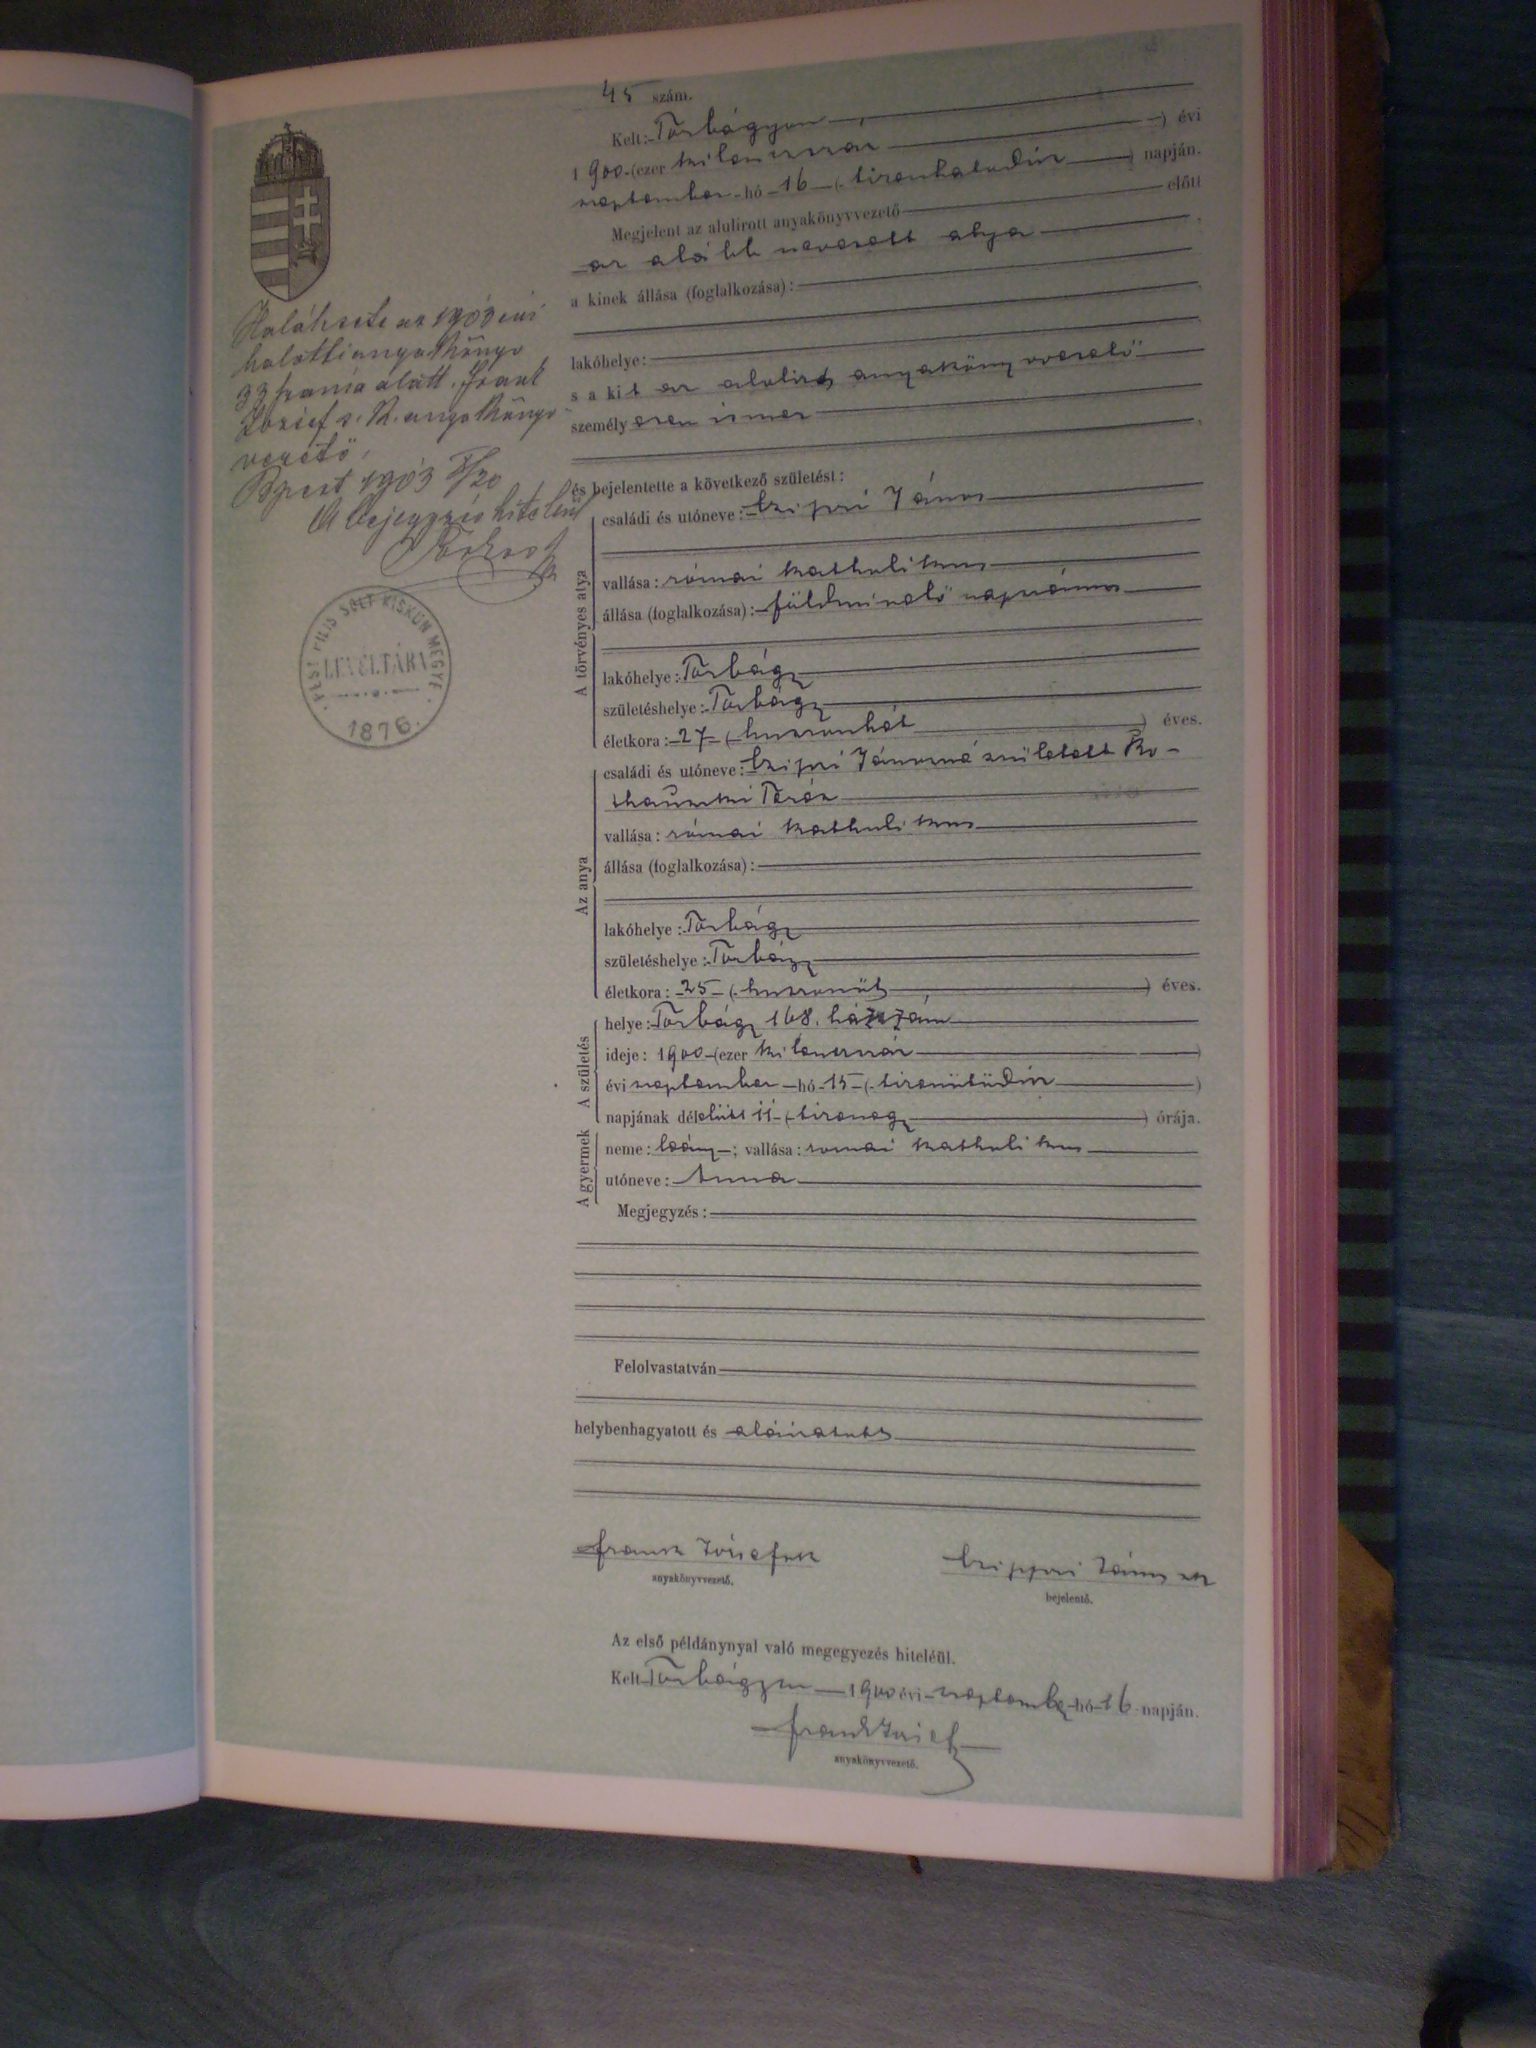 45 szám.
Kelt: Torbágyon,
1900 (ezer kilencszáz) évi
szeptember hó 16 (tizenhatodik) napján.
Megjelent az alulírott anyakönyvvezető előtt
az alább nevezett atya
a kinek állása (foglalkozása):
lakóhelye:
s a kit az alulírt anyakönyvvezető
személyesen ismer
és bejelentette a következő születést:
A törvényes atya
családi és utóneve: Czipri János
vallása: római katholikus
állása (foglalkozása): földmívelő napszámos
lakóhelye: Torbágy
születéshelye: Torbágy
életkora: 27 (huszonhét) éves.
Az anya
családi és utóneve: Czipri Jánosné született Ro-
Teréz
vallása: római katholikus
állása (foglalkozása):
lakóhelye: Torbágy
születéshelye: Torbágy
életkora: 25 (huszonöt) éves.
A születés
helye: Torbágy 168. házszám
ideje: 1900 (ezer kilencszáz)
évi szeptember hó 15 (tizenötödik)
napjának délelőtt 11 (tizenegy) órája.
A gyermek
neme: leány; vallása: római katholikus
utóneve: Anna
Megjegyzés:
Felolvastatván
helybenhagyatott és aláíratott
Frank József sk
anyakönyvvezető.
Czippri János sk
bejelentő.
Az első példánynyal való megegyezés hiteléül.
Kelt Torbágyon 1900 évi szeptember hó 16 napján.
Frank József
anyakönyvvezető.
Halálesete az 1903 évi
halotti anyakönyv
33 szám alatt. Frank
József s. k. anyakönyv
vezető.
Bpest 1903 /20
A bejegyzés hiteléül
PEST PILIS SOLT KISKUN MEGYE
LEVÉLTÁRA
1876.